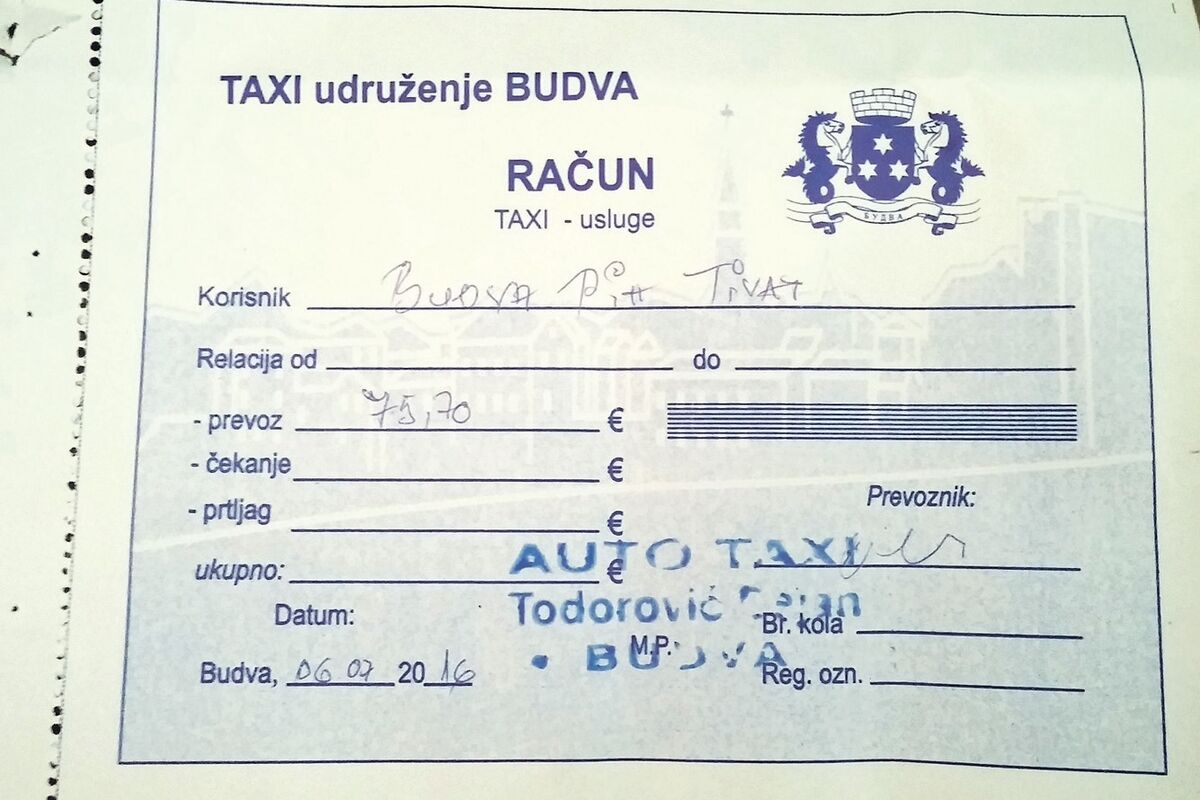 TAXI udruženje BUDVA
RAČUN
TAXI - usluge
БУДВА
Korisnik Budva Tivat
Relacija od do
- prevoz 75,70 €
- čekanje €
- prtljag €
Prevoznik:
ukupno: €
AUTO TAXI
Todorović
BUDVA
Datum:
Br. kola
M.P.
Budva, 06 07 2016
Reg. ozn.